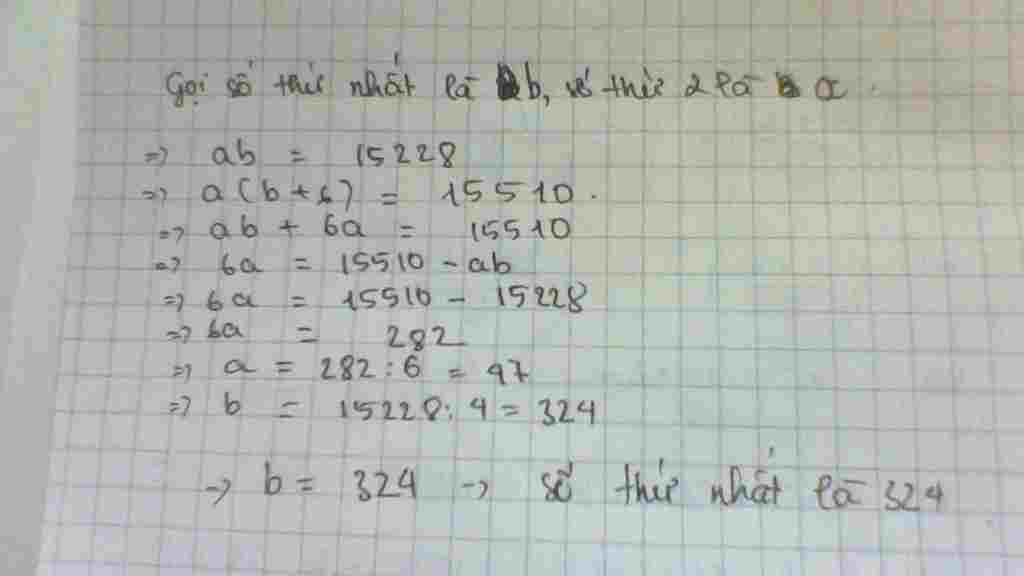 Gọi số thứ nhất là b, số thứ 2 là a.
=> ab = 15228
=> a(b+6) = 15510.
=> ab + 6a = 15510
=> 6a = 15510 - ab
=> 6a = 15510 - 15228
=> 6a = 282
=> a = 282 : 6 = 47
=> b = 15228 : 4 = 324
-> b = 324 -> số thứ nhất là 324